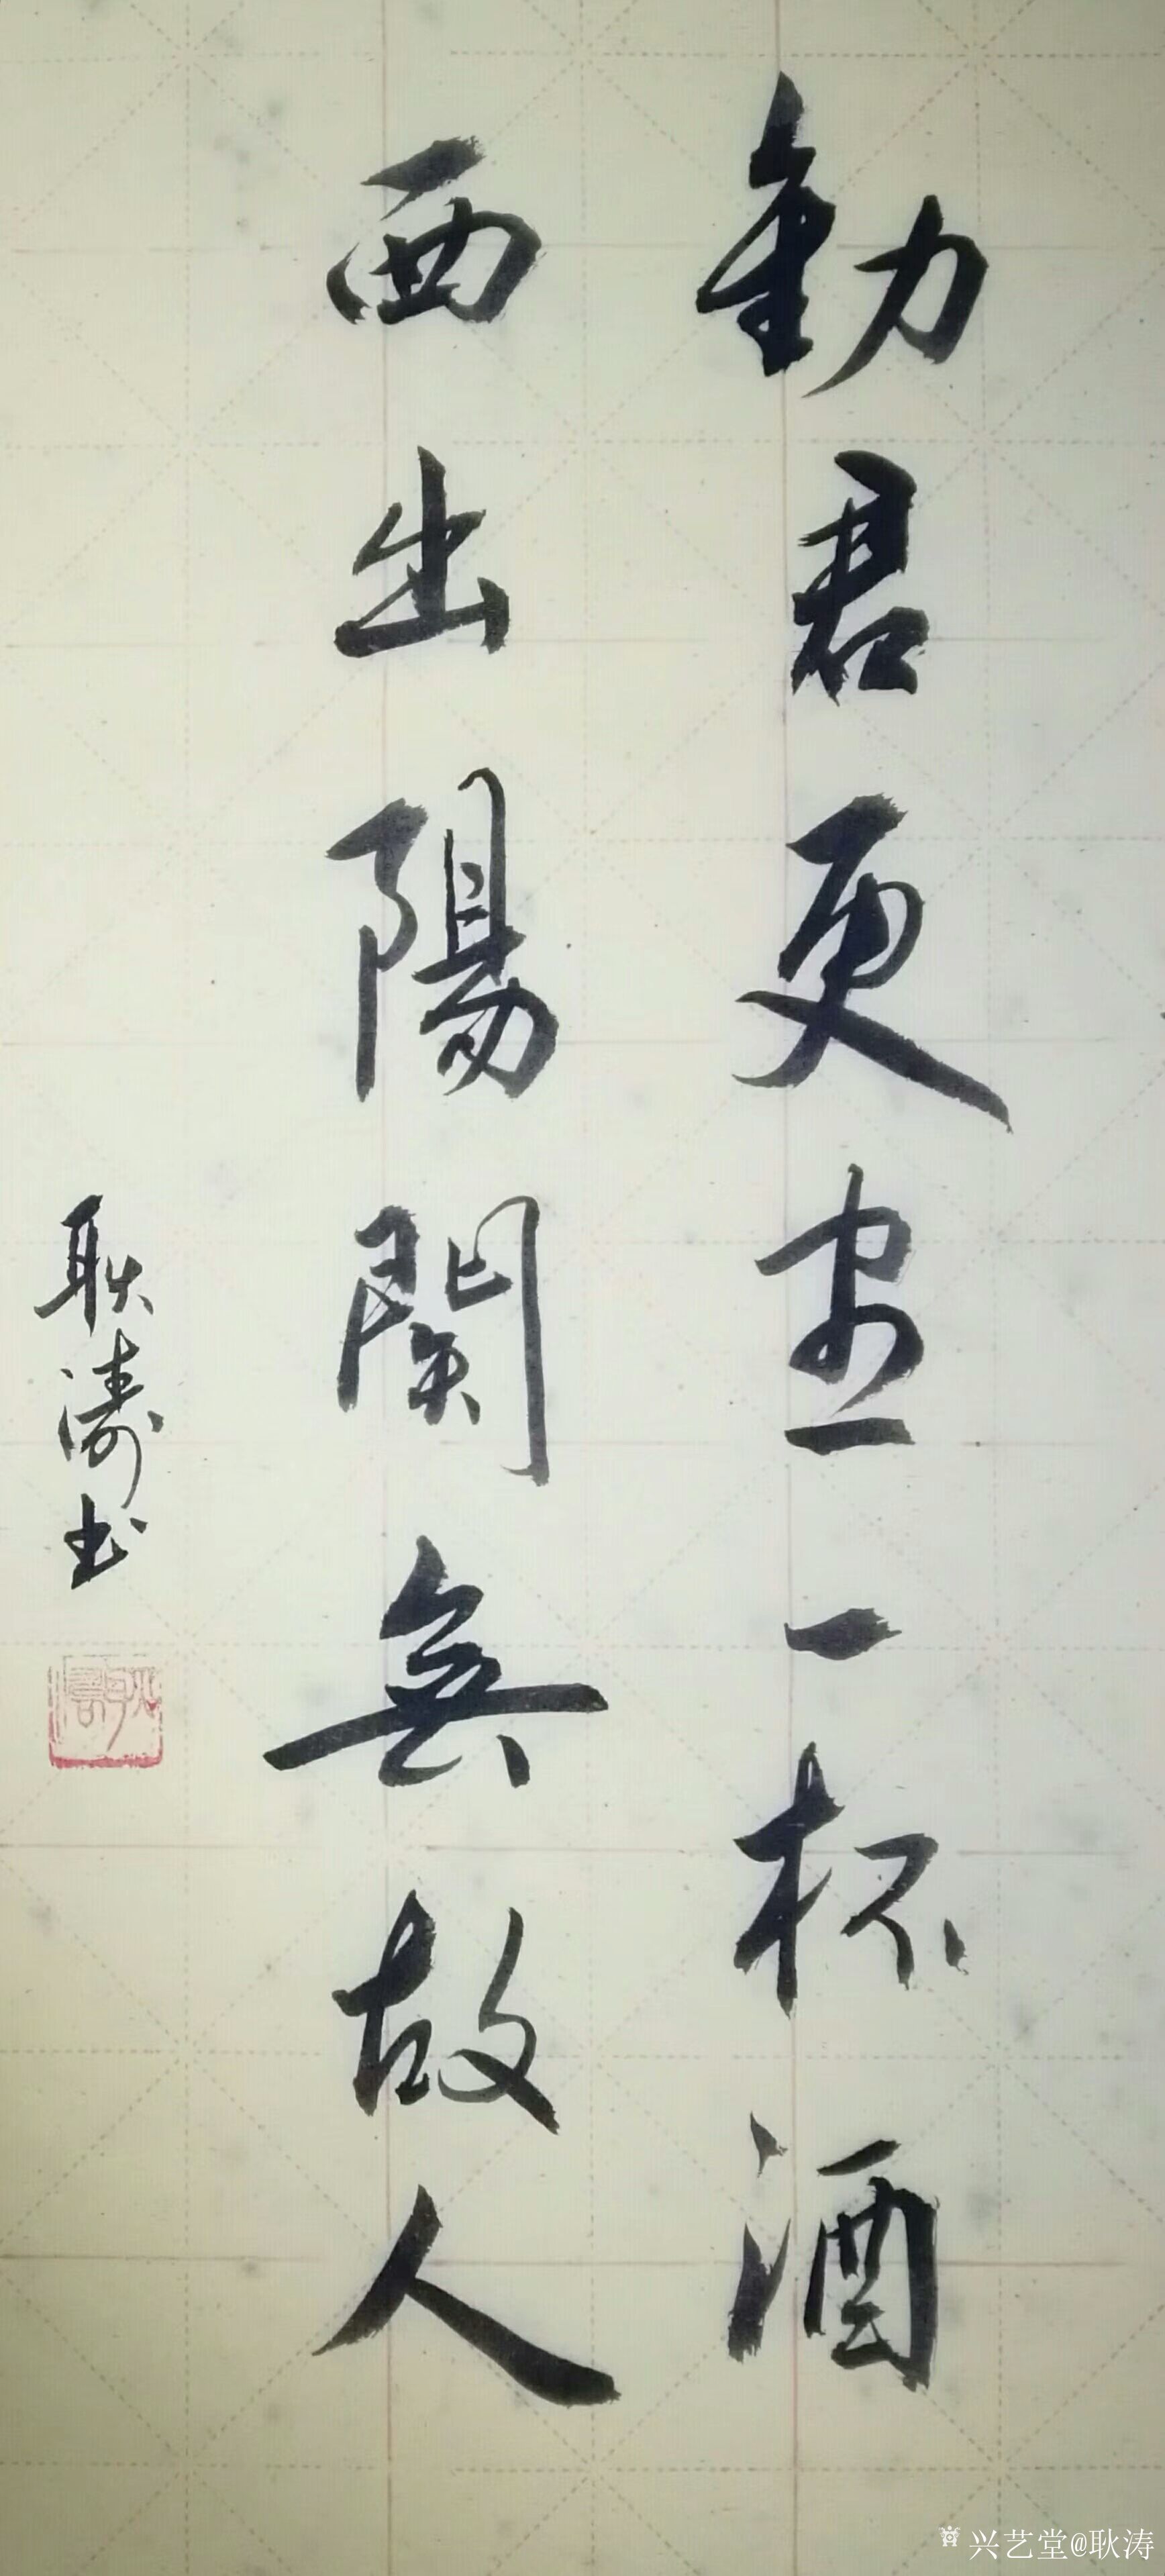 勸君更盡一杯酒
西出陽関無故人
耿濤书
兴艺堂@耿涛